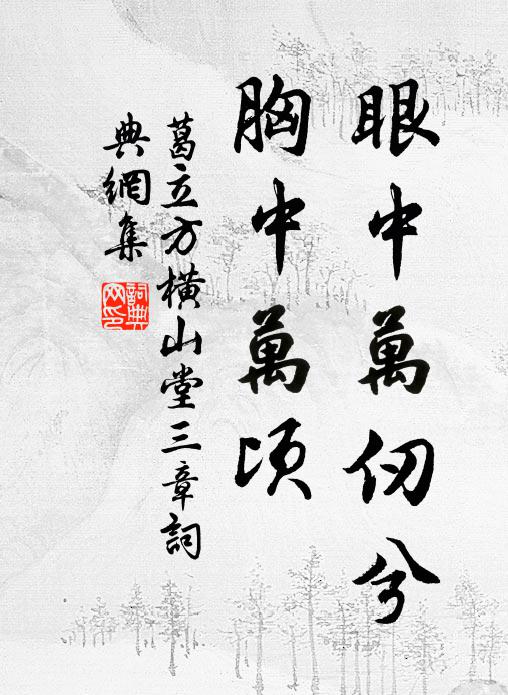 眼中萬仞兮
胸中萬頃
葛立方橫山堂三章詞
典網集
詞典网印